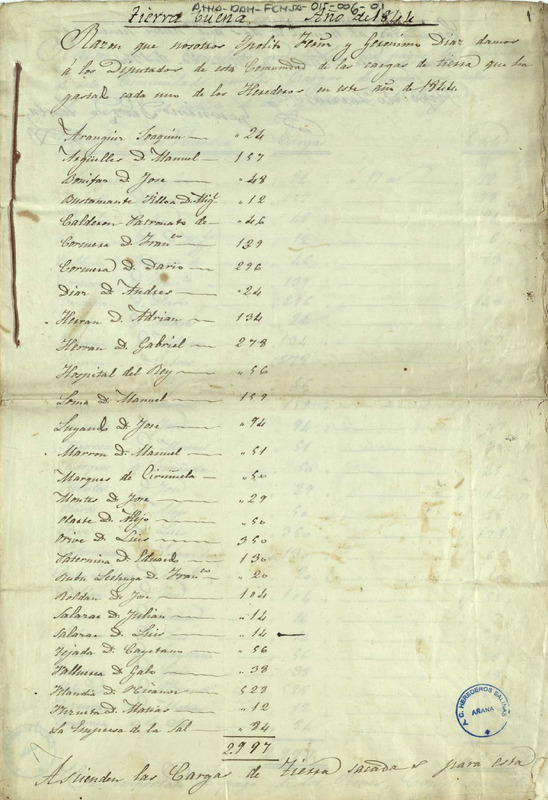 AHA-DAH-FCHSA-015-006-01
Tierra buena. Año de 1844. 1
Razon que nosotros Ypolito y Geronimo Diaz damos
á los Diputados de esta Comunidad de las cargas de tierra que ha
gastado cada uno de los Herederos en este año de 1844.
Aranguiz Joaquin — " 24
Arguelles D. Manuel — 157
Bonifaz D. Jose — " 48
Bustamante D. Mig.l " 12
Calderon Patronato de — " 46
Corcuera D. Fran.co — 129
Corcuera D. Dario — 296
Diaz D. Andres — " 24
Herran D. Adrian — 134
Herran D. Gabriel — 278
Hospital del Rey — " 56
Loma D. Manuel — 159
Luyando D. Jose — " 94
Marron D. Manuel — " 51
Marques de Ciriñuela — " 50
Montes D. Jose — " 29
Olarte D. Alejo — " 50
Orive D. Luis — 350
Paternina D. Eduardo — 130
Rubu Lechuga D. Fran.co — " 20
Roldan D. Jose — 104
Salazar D. Julian — " 14
Salazar D. Luis — " 14 —
Tejada D. Cayetano — " 56
Valluerca D. Gabo — " 38
D. Nicanor — 528
D. Matias — " 12
La Empresa de la Sal — " 94
2997
Ascienden las Cargas de Tierra sacadas para esta
C. HEREDEROS SALINAS
AÑANA